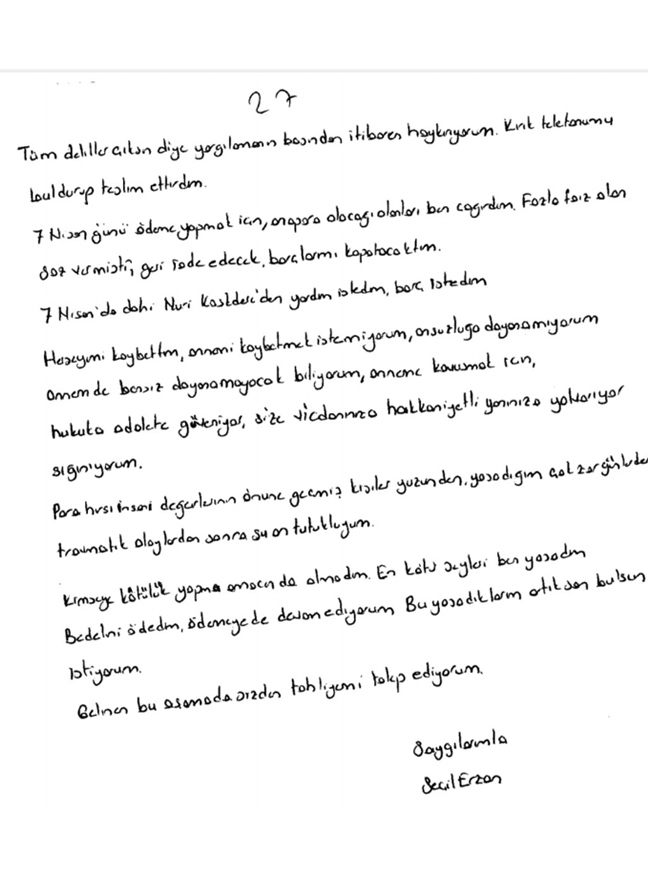 27
Tüm deliller çıksın diye yargılamanın başından itibaren haykırıyorum. Kırık telefonumu
buldurup teslim ettirdim.
7 Nisan günü ödeme yapmak için, anapara alacağı olanları ben çağırdım. Fazla faiz alan
söz vermişti, geri iade edecek, borçlarımı kapatacaktım.
7 Nisan'da dahi Nuri Kasldere'den yardım istedim, borç istedim
Herşeyimi kaybettim, annemi kaybetmek istemiyorum, onsuzluğa dayanamıyorum
annem de bensiz dayanamayacak biliyorum, anneme kavuşmak için,
hukuka adalete güveniyor, size vicdanınıza hakkaniyetli yanınıza yalvarıyor
sığınıyorum.
Para hırsı insani değerlerinin önüne geçmiş kişiler yüzünden, yaşadığım çok zor günlerden
travmatik olaylardan sonra şu an tutukluyum.
Kimseye kötülük yapma amacında olmadım. En kötü şeyleri ben yaşadım
Bedelini ödedim, ödemeye de devam ediyorum Bu yaşadıklarım artık son bulsun
istiyorum.
Gelinen bu aşamada sizden tahliyemi talep ediyorum.
Saygılarımla
Seçil Erzan